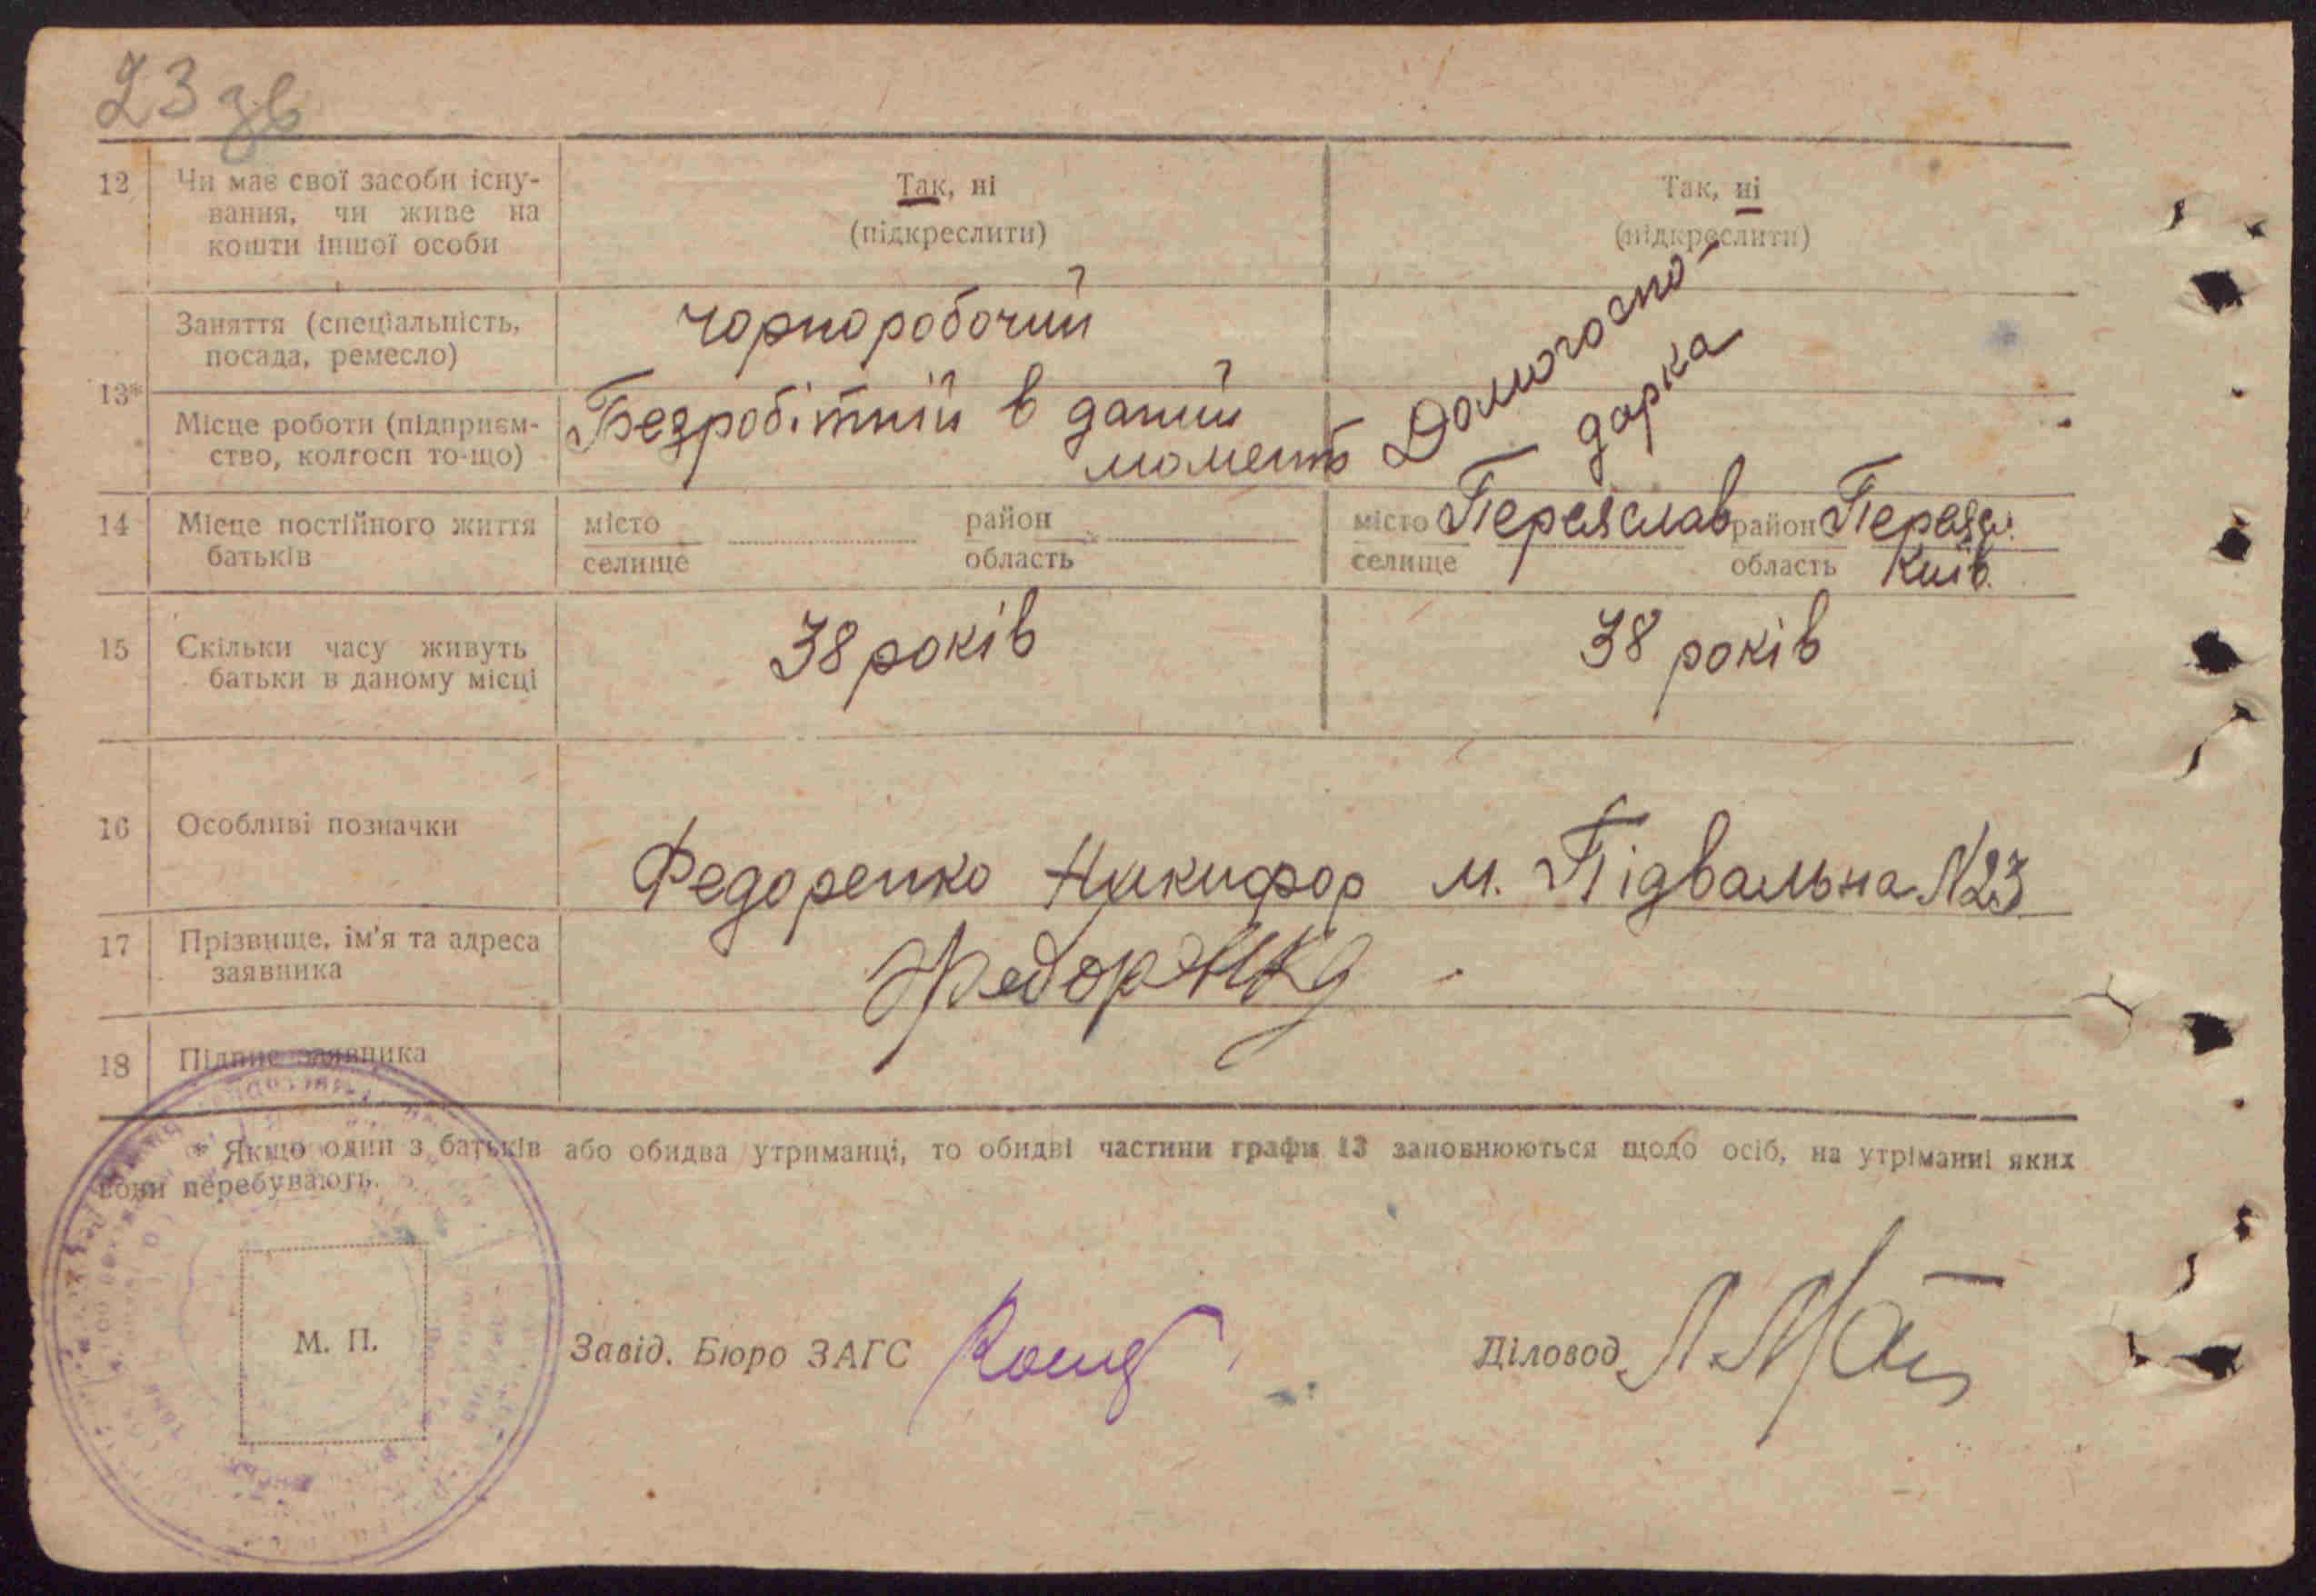 23 зв
12 Чи має свої засоби існу-
вання, чи живе на
кошти іншої особи
Так, ні
(підкреслити)
Так, ні
(підкреслити)
13*
Заняття (спеціальність,
посада, ремесло)
чорноробочий
Домогоспо-
дарка
Місце роботи (підприєм-
ство, колгосп то-що)
Безробітній в даний
моментъ
14 Місце постійного життя
батьків
місто район
селище область
місто Переяслав район Переясл.
селище область Київ.
15 Скільки часу живуть
батьки в даному місці
38 років
38 років
16 Особливі позначки
Федоренко Никифор м. Підвальна N23
17 Прізвище, ім'я та адреса
заявника
Федоренко
18 Підпис заявника
* Якщо один з батьків або обидва утриманці, то обидві частини графи 13 заповнюються щодо осіб, на утріманні яких
вони перебувають.
М. П.
Завід. Бюро ЗАГС
Діловод